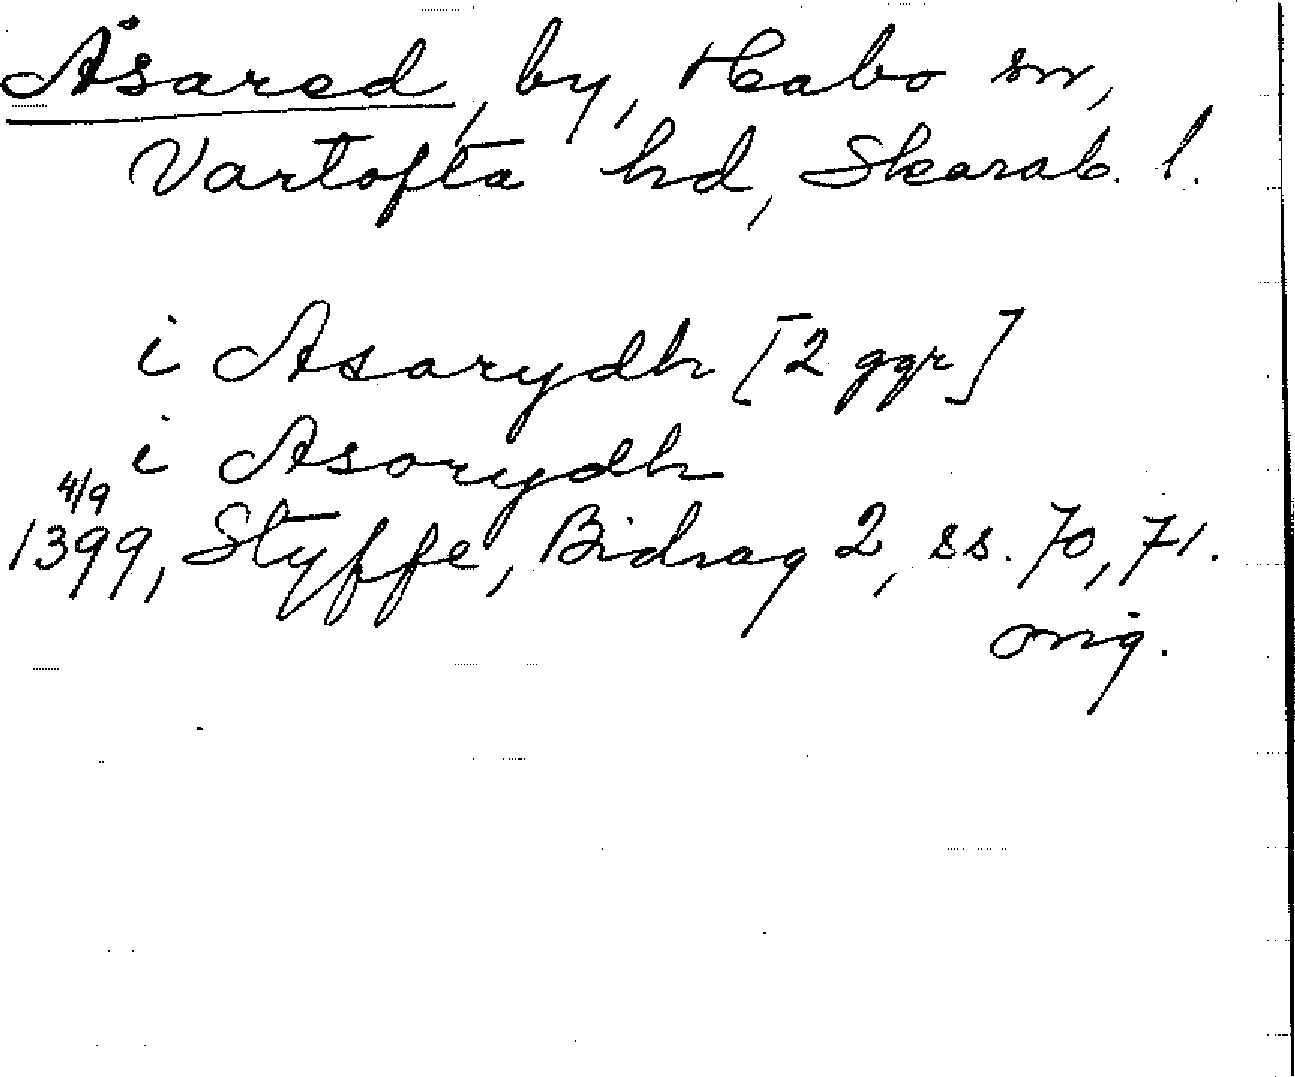 Åsared, by, Habo sn,
Vartofta hd, Skarab. l.
i Asarydh [2 ggr]
i Asorydh
4/9
1399, Styffe, Bidrag 2, ss. 70, 71.
orig.